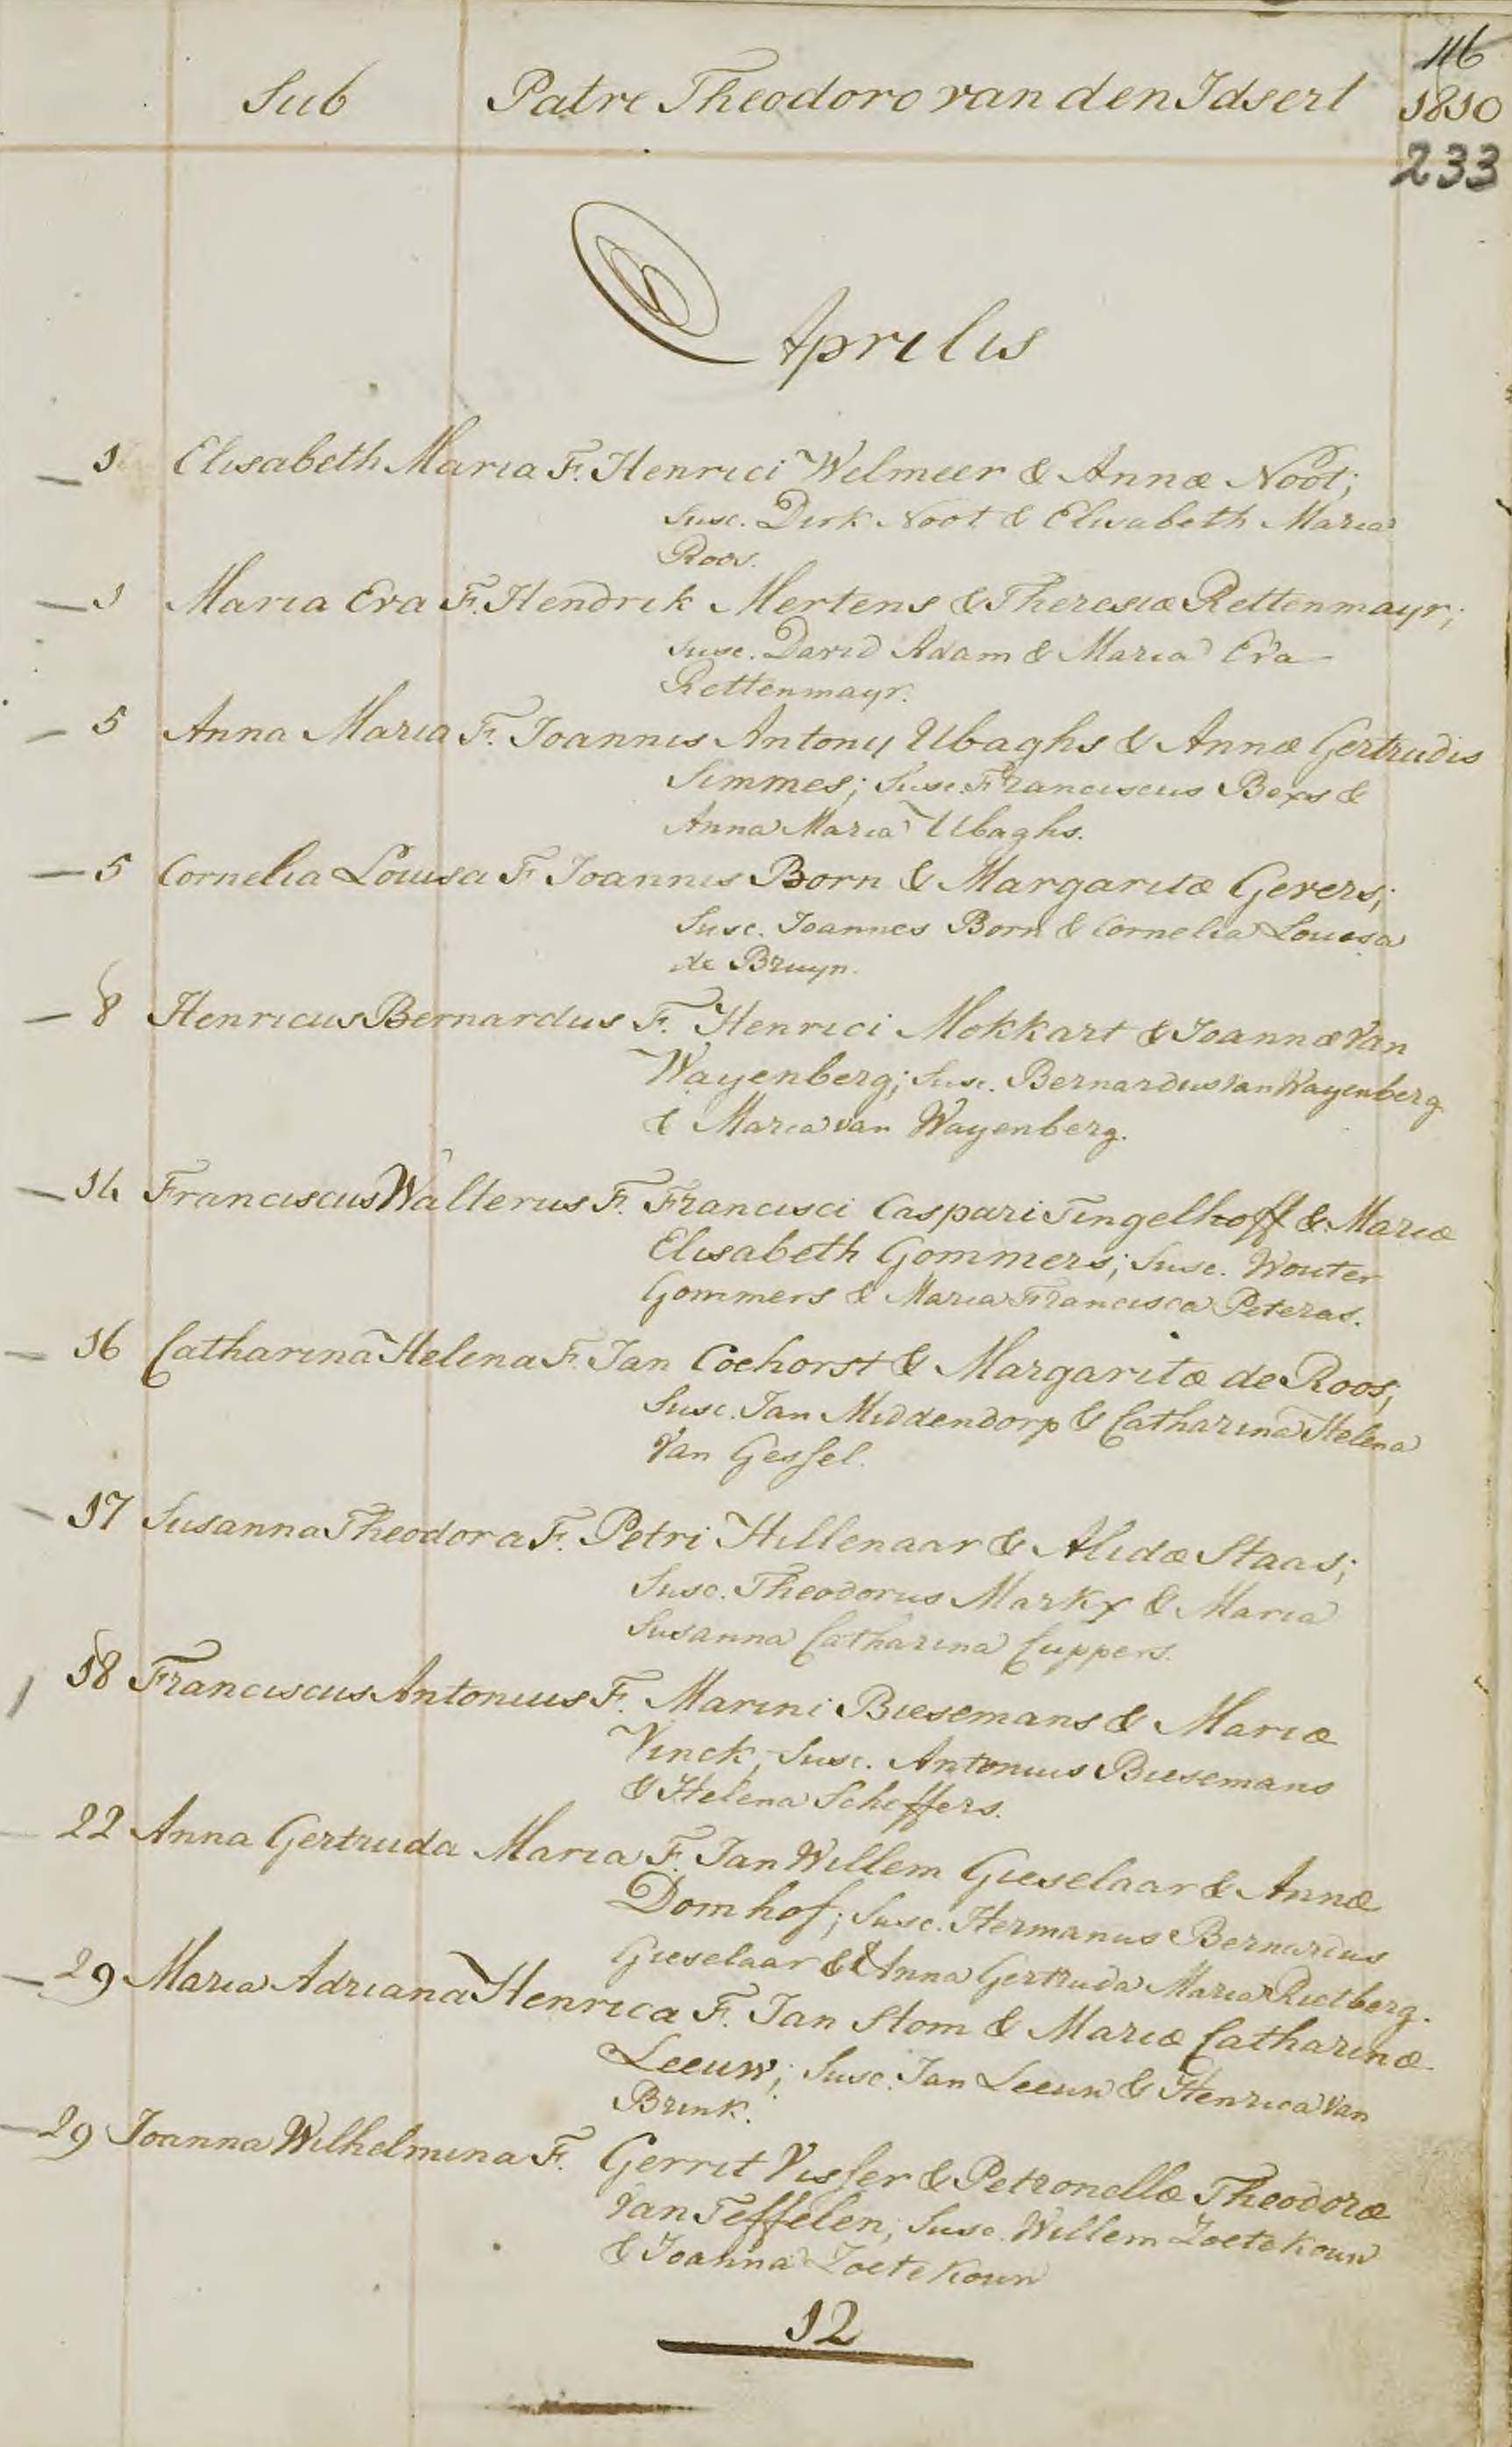 116
Sub Patre Theodoro van den Idsert 1810
233
Aprilis
1 Elisabeth Maria F. Henrici Welmeer & Annæ Noot;
Susc. Dirk Noot & Elisabeth Maria
Roos.
1 Maria Eva F. Hendrik Mertens & Theresiæ Rettenmayr;
Susc. David Adam & Maria Eva
Rettenmayr.
5 Anna Maria F. Joannis Antony Ubaghs & Annæ Gertrudis
Simmes; Susc. Franciscus Bexs &
Anna Maria Ubaghs.
5 Cornelia Louisa F Joannis Born & Margaritæ Gevers;
Susc. Joannes Born & Cornelia Louisa
de Bruyn.
8 Henricus Bernardus F. Henrici Mokkart & Joannæ Van
Wayenberg; Susc. Bernardus van Wayenberg
& Maria van Wayenberg.
14 Franciscus Walterus F. Francisci Caspari Tingelhoff & Mariæ
Elisabeth Gommers; Susc. Wouter
Gommers & Maria Francisca Peteras.
16 Catharina Helena F. Jan Coehorst & Margaritæ de Roos;
Susc. Jan Middendorp & Catharina Helena
Van Gessel.
17 Susanna Theodora F. Petri Hillenaar & Alidæ Staas;
Susc. Theodorus Markx & Maria
Susanna Catharina Cuppers.
18 Franciscus Antonius F. Marini Biesemans & Mariæ
Vinck, Susc. Antonius Biesemans
& Helena Scheffers.
22 Anna Gertruda Maria F. Jan Willem Gieselaar & Annæ
Domhof; Susc. Hermanus Bernardus
Gieselaar & Anna Gertruda Maria Rietberg.
29 Maria Adriana Henrica F. Jan Stom & Mariæ Catharinæ
Leeuw; Susc. Jan Leeuw & Henrica Van
Brink.
29 Joanna Wilhelmina F. Gerrit Visser & Petronellæ Theodoræ
Van Teffelen; Susc. Willem Zoetekouw
& Joanna Zoetekouw
12